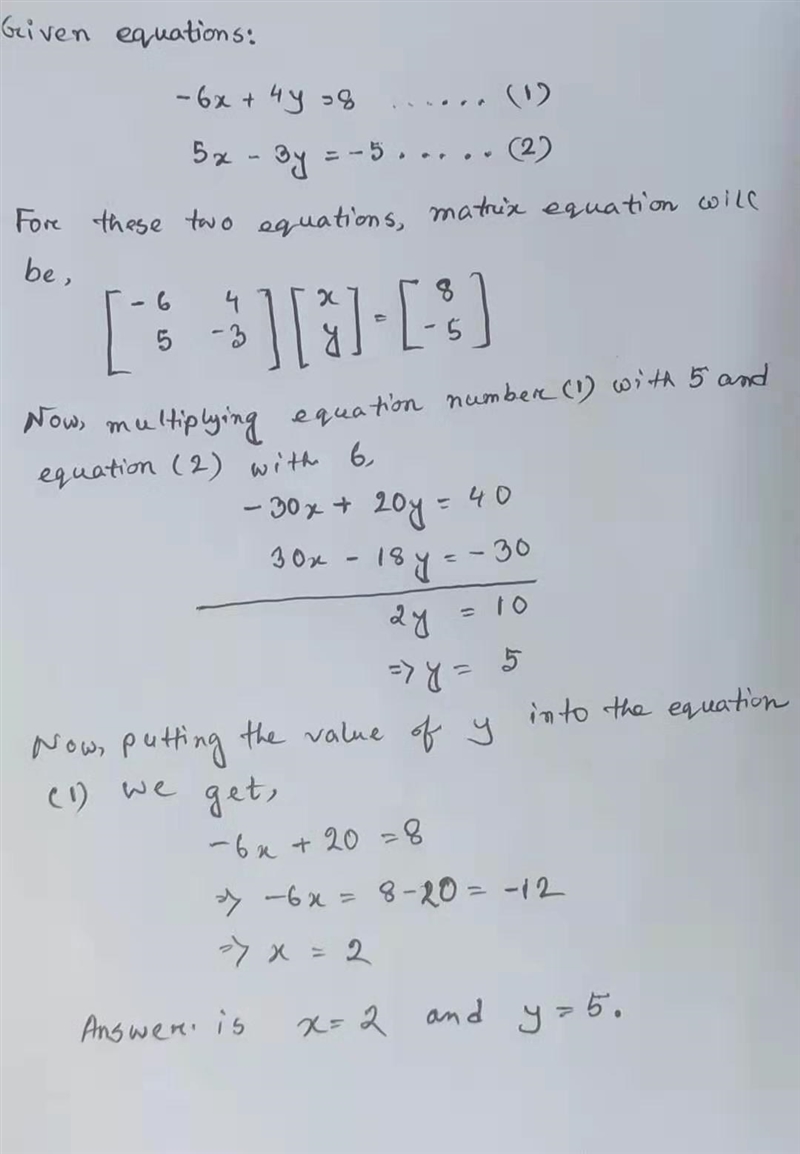 Given equations:
-6x + 4y = 8 ...... (1)
5x - 3y = -5 ..... (2)
For these two equations, matrix equation will
be,
[ -6 4 ] [ x ] = [ 8 ]
[ 5 -3 ] [ y ] [ -5 ]
Now, multiplying equation number (1) with 5 and
equation (2) with 6,
-30x + 20y = 40
30x - 18y = -30
2y = 10
=> y = 5
Now, putting the value of y into the equation
(1) we get,
-6x + 20 = 8
=> -6x = 8-20 = -12
=> x = 2
Answer. is x = 2 and y = 5.